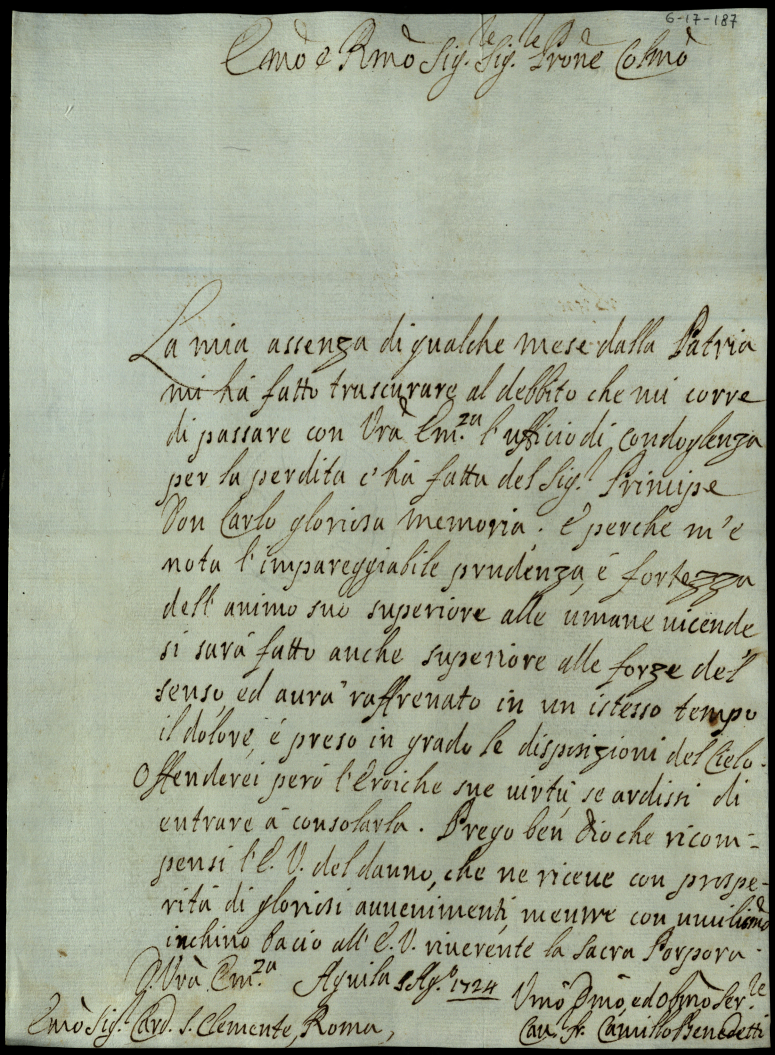 6-17-187
Emo e Rmo Sig.re Sig.re Prone Colmo
La mia assenza di qualche mese dalla Patria
mi há fatto trascurare al debbito che mi corre
di passare con Vra Em.za l'ufficio di condoglenza
per la perdita c'há fatta del Sig.r Principe
Don Carlo gloriosa memoria. E perche m'è
nota l'impareggiabile prudenza, é fortezza
dell'animo suo superiore alle umane uicende
si sará fatto anche superiore alle forze del
senso ed aurá raffrenato in un istesso tempo
il dolore, é preso in grado le disposizioni del Cielo.
Offenderei peró l'Eroiche sue uirtú se ardissi di
entrare á consolarla. Prego ben Dio che ricom-
pensi l'E. V. del danno, che ne riceue con prospe-
ritá di gloriosi auuenimenti, mentre con umilissmo
inchino bacio all'E. V. riuerente la sacra Porpora.
D. Vra Em.za Aquila Ag.o 1724
Vmo Dmo, ed Obmo Ser.re
Emo Sig.r Card. S. Clemente, Roma,
Cau. fr. Camillo Benedetti